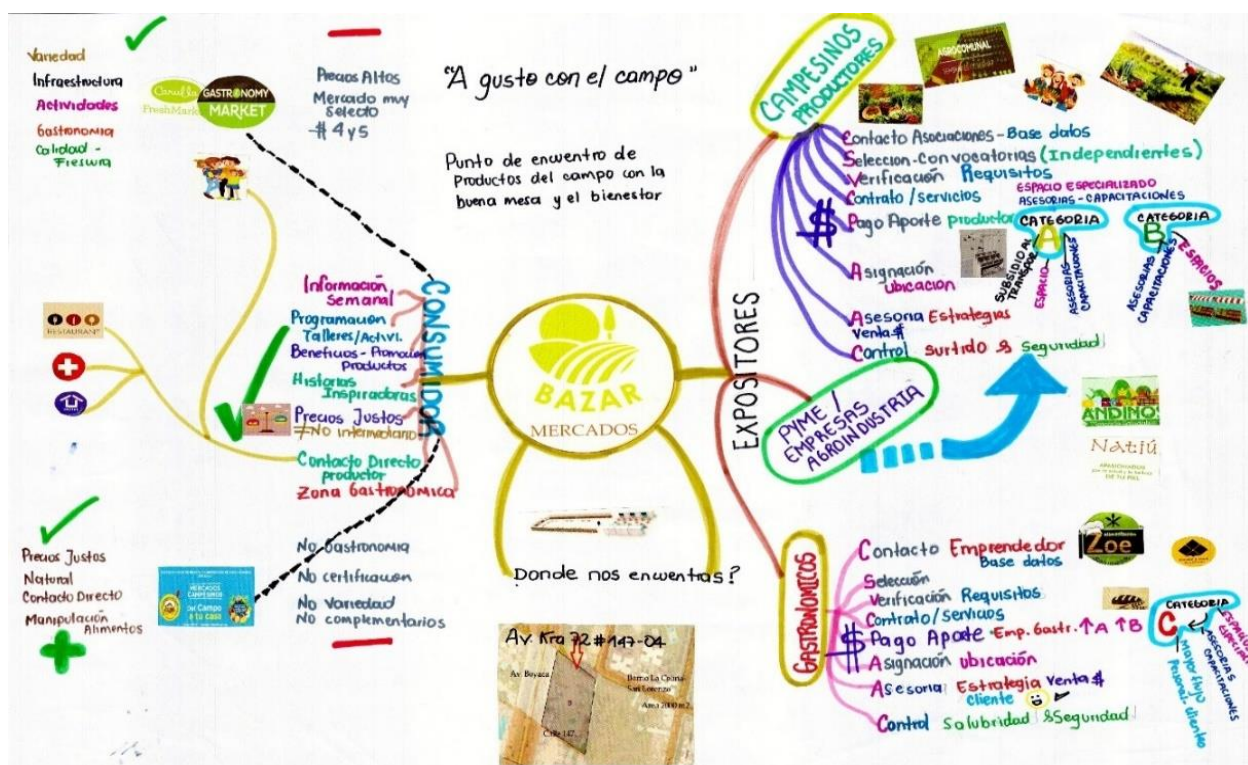 Variedad
Infraestructura
Actividades
Gastronomia
Calidad -
Frescura
Carulla
FreshMarket
GASTRONOMY
MARKET
Precios Altos
Mercado muy
Selecto
# 4 y 5
"A gusto con el campo"
Punto de encuentro de
Productos del campo con la
buena mesa y el bienestar
CONSUMIDOR
Información
Semanal
Programación
Talleres/Activi.
Beneficios - Promoción
Productos
Historias
Inspiradoras
Precios Justos
No intermediario
Contacto Directo
productor
Zona Gastronómica
RESTAURANT
Precios Justos
Natural
Contacto Directo
Manipulación
Alimentos
MERCADOS
CAMPESINOS
del Campo
a tu casa
No Gastronomia
No certificación
No Variedad
No complementarios
BAZAR
MERCADOS
Donde nos encuentras?
Av. Kra 72 # 147-04
Av. Boyaca
Barrio La Colina
San Lorenzo
Area 2000 m2
Calle 147
EXPOSITORES
CAMPESINOS
PRODUCTORES
AGROCOMUNAL
Contacto Asociaciones - Base datos
Seleccion - Convocatorias (Independientes)
Verificación Requisitos
Contrato / servicios
$ Pago Aporte productor
ESPACIO ESPECIALIZADO
ASESORIAS - CAPACITACIONES
CATEGORIA
A
SUBSIDIO AL
TRANSPORTE
ESPACIO
ASESORIAS
CAPACITACIONES
CATEGORIA
B
ASESORIAS
CAPACITACIONES
ESPACIOS
Asignación
ubicación
Asesoria Estrategias
Venta $
Control surtido & Seguridad
PYME /
EMPRESAS
AGROINDUSTRIA
ANDINOS
Natiú
APASIONADOS
DE TU PIEL
GASTRONOMICOS
Contacto Emprendedor
Base datos
Selección
Verificación Requisitos
Contrato / Servicios
$ Pago Aporte Emp. Gastr. ↑A ↑B
Asignación ubicación
Asesoria Estrategia Venta $
cliente
Control Salubridad & Seguridad
Zoe
CATEGORIA
C
Mayor flujo
Personal - clientes
ASESORIAS
CAPACITACIONES